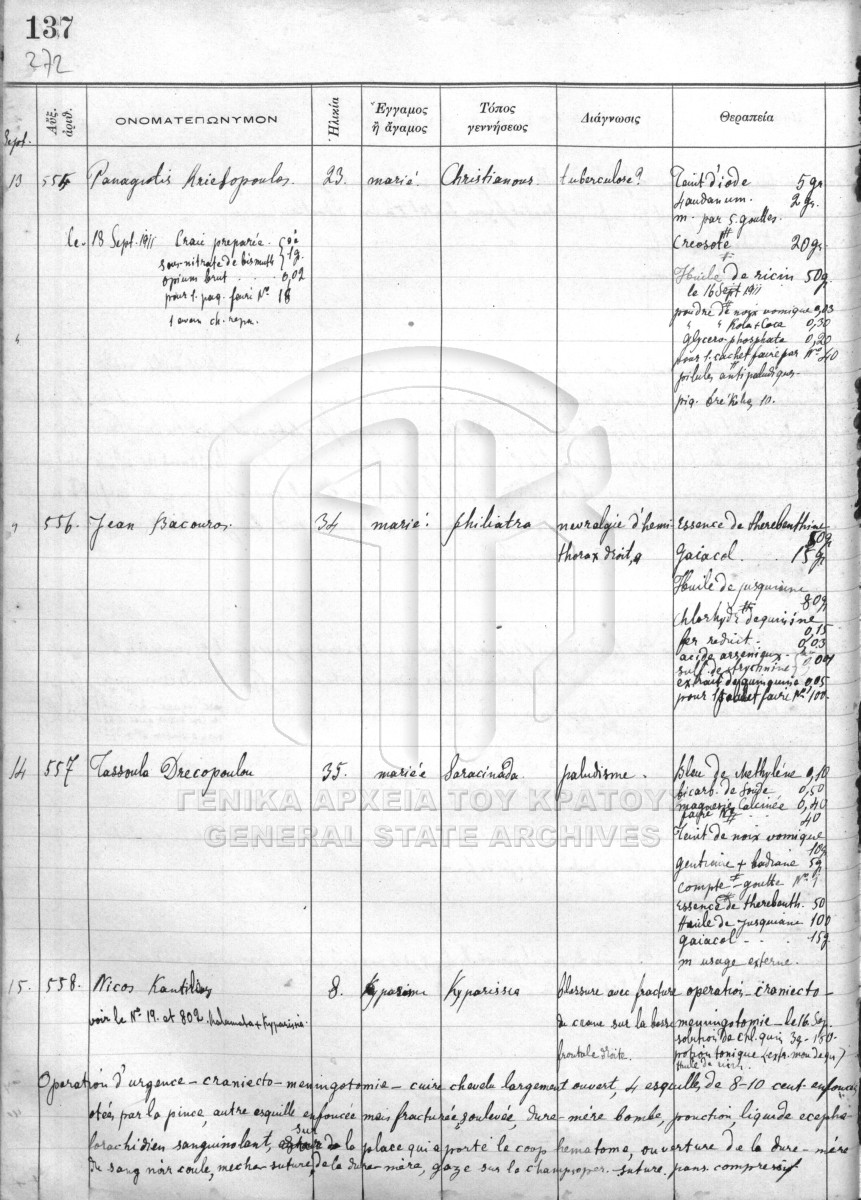 137
372
Αὔξ. ἀριθ.
ΟΝΟΜΑΤΕΠΩΝΥΜΟΝ
Ἡλικία
Ἔγγαμος ἢ ἄγαμος
Τόπος γεννήσεως
Διάγνωσις
Θεραπεία
Sept.
13 555 Panagiotis 23. marié. Christianous. tuberculose?
Teint d'iode 5 gr
Laudanum. 2 gr.
m. par 5 gouttes.
Creosote 20 gr.
Huile de ricin 50 g
le 16 Sept 1911
poudre de noix vomique 0,03
" " Kola + Coca 0,30
Glycero-phosphate 0,20
pour 1. cachet faire par Nº 40
pilules antipaludiques
10.
le 18 Sept. 1911 Craie preparée
sous-nitrate de bismuth 1 g.
opium brut 0,02
pour 1. paq. faire Nº 18
1 avan ch. repa.
" 556. Jean Bacouros 34 marié. philiatra nevralgie d'hemi-
thorax droit,
Essence de therebenthine
50g
Gaiacol 15 g
Huile de jusquiame
80g
chlorhydr de quinine
0,15
fer reduit 0,03
acide arsenieux
sulf. de strychnine 0,001
extrait de quinquina 0,05
pour 1 cachet faire Nº 100.
14 557 Tassoula Drecopoulou 35. mariée Saracinada. paludisme.
Bleu de Methylène 0,10
bicarb. de Soude 0,50
magnesie Calcinée 0,40
faire 40
Teint de noix vomique
10g
gentiane + badiane 5g
compte-goutte Nº 1
Essence de therebenth. 50
Huile de jusquiame 100
gaiacol 15g.
m usage externe.
15. 558. Nicos 8. Kyparissia
voir le Nº 19. et 802. Kalamata + Kyparissia.
blessure avec fracture
du crane sur la bosse
frontale droite.
operation-craniecto-
meningotomie-le 16 Sep.
solution de chl. quin 3g-150
potion tonique
Operation d'urgence - craniecto-meningotomie - cuire chevelu largement ouvert, 4 esquilles de 8-10 cent enfoncées
otées par la pince, autre esquille enfoncée mais fracturée, soulevée, dure-mère bombe, ponction, liquide ecepha-
lorachidien sanguinolant, sur la place qui a porté le coup hematome, ouverture de la dure-mère
du sang noir coule, meche-suture, de la dure-mère, gaze sur le champ oper. suture. pans. compressif
ΓΕΝΙΚΑ ΑΡΧΕΙΑ ΤΟΥ ΚΡΑΤΟΥΣ
GENERAL STATE ARCHIVES